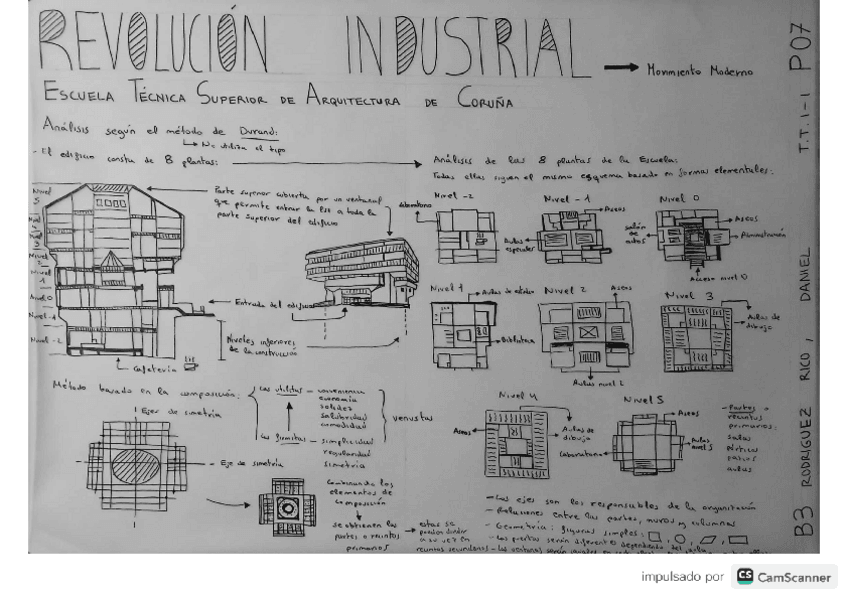 REVOLUCIÓN INDUSTRIAL → Movimiento Moderno
ESCUELA TÉCNICA SUPERIOR DE ARQUITECTURA DE CORUÑA
Análisis según el método de Durand:
utiliza el tipo
- El edificio consta de 8 plantas:
Análisis de las 8 plantas de la Escuela:
Todas ellas siguen el mismo esquema basado en formas elementales:
Parte superior cubierta por un ventanal
que permite entrar la luz a toda la
parte superior del edificio
Nivel
5
Nivel
3
Nivel
1
Nivel -1
Nivel -2
Entrada del edificio
Niveles inferiores
de la construcción
Cafetería
Nivel -2
laboratorio
Nivel -1
Aseos
Aulas
especiales
Nivel 0
Aseos
salón
de actos
Administración
Acceso nivel 0
Nivel 1
Biblioteca
Nivel 2
Aseos
Aulas nivel 2
Nivel 3
Aulas de
dibujo
Nivel 4
Aseos
Aulas de
dibujo
Nivel 5
Aseos
Laboratorio
Aulas
nivel 5
- Partes o
recintos
primarios:
salas
pórticos
patios
aulas
Método basado en la composición:
Las utilitas - conveniencia
economía
solidez
salubridad
comodidad
Las firmitas - simplicidad
regularidad
simetría
venustas
Ejes de simetría
Eje de simetría
Combinando los
elementos de
composición
se obtienen las
partes o recintos
primarios
estas se
pueden dividir
a su vez en
recintos secundarios
- Los ejes son los responsables de la organización
- Relaciones entre las partes, muros y columnas
- Geometría: figuras simples:
- Las puertas serán diferentes dependiendo del
- Las ventanas serán iguales en
B3 RODRIGUEZ RICO, DANIEL T.T.1-1 P07
impulsado por CS CamScanner